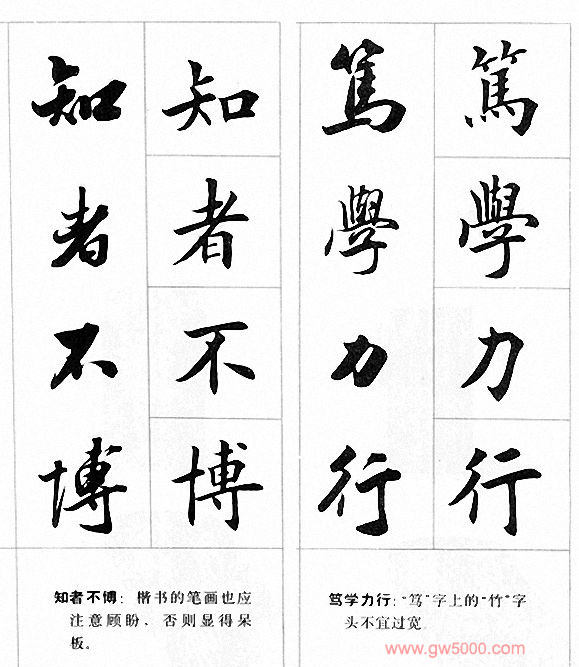 篤學力行
篤學力行
知者不博
知者不博
笃学力行：“笃”字上的“竹”字
头不宜过宽
知者不博：楷书的笔画也应
注意顾盼，否则显得呆
板。
www.gw5000.com